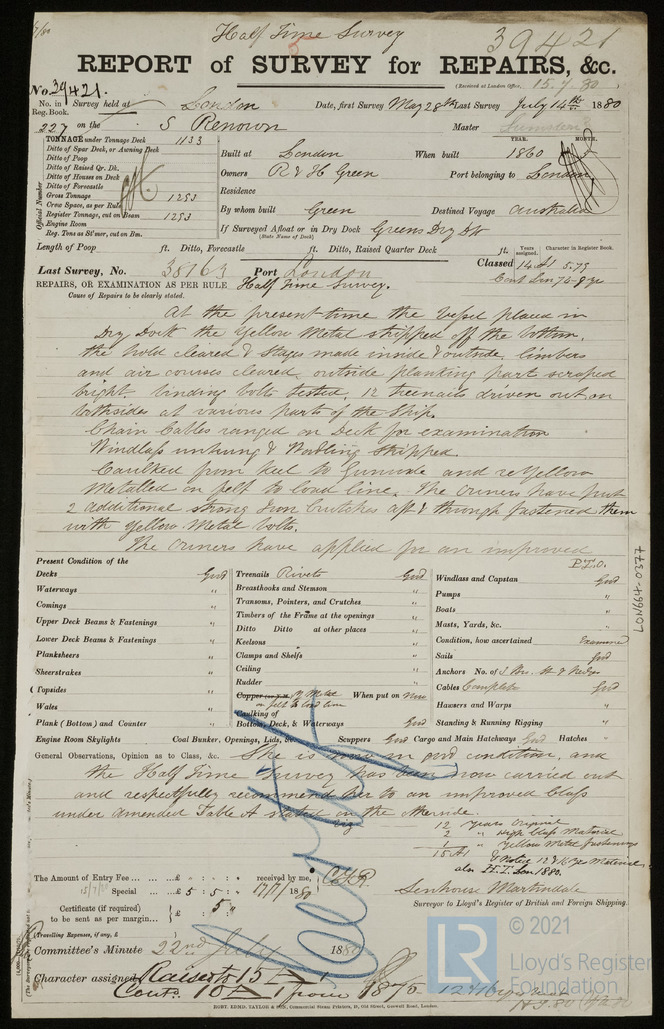 Half Time Survey
39421
REPORT of SURVEY for REPAIRS, &c.
(Received at London Office, 15.7.80)
No. 39421.
No. in Reg. Book. Survey held at London Date, first Survey May 28th Last Survey July 14th 1880
227 on the S Renown Master
TONNAGE under Tonnage Deck 1133
Ditto of Spar Deck, or Awning Deck
Ditto of Poop
Ditto of Raised Qr. Dk.
Ditto of Houses on Deck
Ditto of Forecastle
Gross Tonnage 1293
Crew Space, as per Rule
Register Tonnage, cut on Beam 1293
Engine Room
Reg. Tons as St'mer, cut on Bm.
Official Number
YEAR. MONTH.
Built at London When built 1860
Owners R & H Green Port belonging to London
Residence
By whom built Green Destined Voyage Australia
If Surveyed Afloat or in Dry Dock Greens Dry Dk
(State Name of Dock)
Length of Poop ft. Ditto, Forecastle ft. Ditto, Raised Quarter Deck ft.
Years assigned. Character in Register Book.
Last Survey, No. 38163 Port London Classed 14 A1 5.79
Cont Lon 70-9 yr
REPAIRS, OR EXAMINATION AS PER RULE Half Time Survey.
Cause of Repairs to be clearly stated.
At the present time the Vessel placed in
Dry Dock the Yellow Metal stripped off the bottom,
the hold cleared & stages made inside & outside, limbers
and air courses cleared, outside planking part scraped
bright. binding bolts tested, 12 treenails driven out on
both sides at various parts of the Ship.
Chain Cables ranged on Deck for examination
Windlass unhung & Windling stripped.
Caulked from keel to Gunwale and reYellow
Metalled on felt to load line. The owners have put
2 additional strong Iron crutches aft & through fastened them
with Yellow Metal bolts.
The owners have applied for an improved
P.T.O.
Present Condition of the
Decks Good
Waterways "
Comings "
Upper Deck Beams & Fastenings "
Lower Deck Beams & Fastenings "
Planksheers "
Sheerstrakes "
Topsides "
Wales "
Plank (Bottom) and Counter "
Treenails Rivets Good
Breasthooks and Stemson "
Transoms, Pointers, and Crutches "
Timbers of the Frame at the openings "
Ditto Ditto at other places "
Keelsons "
Clamps and Shelfs "
Ceiling "
Rudder "
Y Metal When put on Now
on felt to load line
Caulking of
Bottom, Deck, & Waterways Good
Windlass and Capstan Good
Pumps "
Boats "
Masts, Yards, &c. "
Condition, how ascertained Examined
Sails Good
Anchors No. of 3
Cables Complete Good
Hawsers and Warps "
Standing & Running Rigging "
Engine Room Skylights Coal Bunker, Openings, Lids, &c. Scuppers Good Cargo and Main Hatchways Good Hatches "
General Observations, Opinion as to Class, &c. She is now in good condition, and
the Half Time Survey has been now carried out
and respectfully recommend her to an improved Class
under amended Table A stated on the Merside
viz
12 Years Original
2 " High Class Material
1 " Yellow Metal fastenings
15 A1
also H.T. Lon 1880.
The Amount of Entry Fee ... £ : : received by me, C.H.R.
15/7/80 Special ... £ 5 : 5 : 17/7/1880
Certificate (if required) to be sent as per margin... £ : 5 :
(Travelling Expenses, if any, £ )
Senhouse Martindale
Surveyor to Lloyd's Register of British and Foreign Shipping.
Committee's Minute 22nd July 1880
Character assigned Raised to 15 A 1
Contd. 10 A 1 from 1870
ROBT. EDMD. TAYLOR & SON, Commercial Steam Printers, 19, Old Street, Goswell Road, London.
LON699-0377
© 2021
LR
Lloyd's Register
Foundation